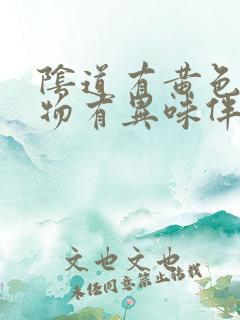 陰道有黄色
物有異味伴
文也文也
未经同意禁止转载